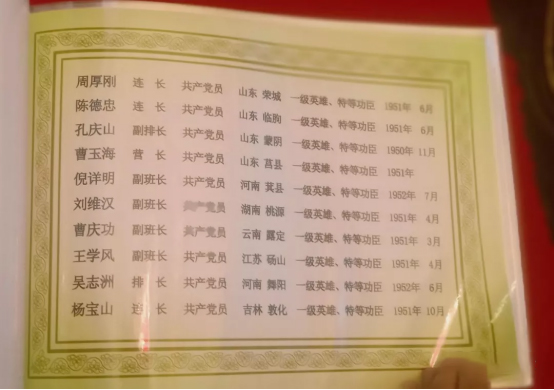 周厚刚 连 长 共产党员 山东 荣城 一级英雄、特等功臣 1951年 6月
陈德忠 连 长 共产党员 山东 临朐 一级英雄、特等功臣 1951年 6月
孔庆山 副排长 共产党员 山东 蒙阴 一级英雄、特等功臣 1950年 11月
曹玉海 营 长 共产党员 山东 莒县 一级英雄、特等功臣 1951年
倪详明 副班长 共产党员 河南 箕县 一级英雄、特等功臣 1952年 7月
刘维汉 副班长 共产党员 湖南 桃源 一级英雄、特等功臣 1951年 4月
曹庆功 副班长 共产党员 云南 露定 一级英雄、特等功臣 1951年 3月
王学风 副班长 共产党员 江苏 砀山 一级英雄、特等功臣 1951年 4月
吴志洲 排 长 共产党员 河南 舞阳 一级英雄、特等功臣 1952年 6月
杨宝山 连 长 共产党员 吉林 敦化 一级英雄、特等功臣 1951年 10月